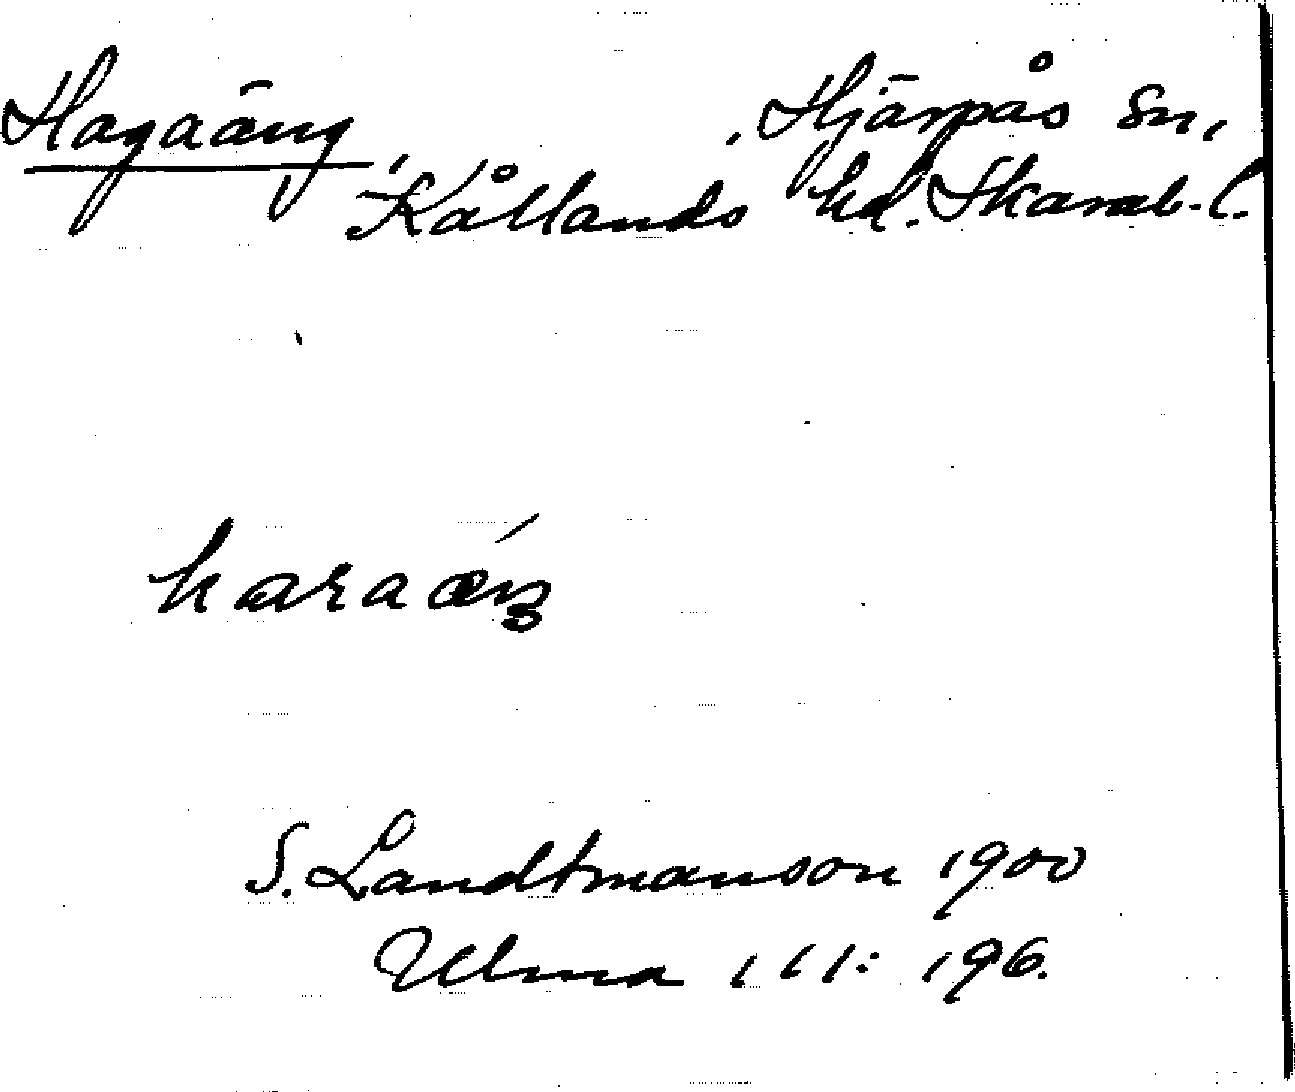 Hagaäng, Hjärpås Sn,
Kållands hd. Skarab.l.
S. Landtmanson 1900
Ulma 111: 196.